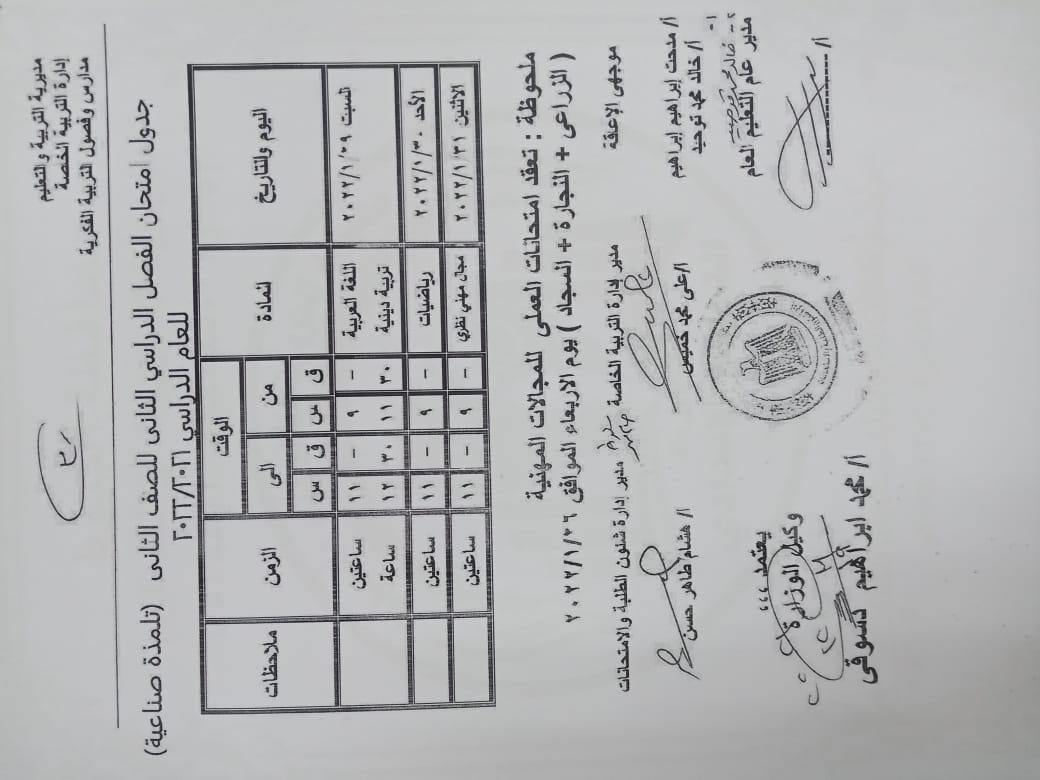 مديرية التربية والتعليم
إدارة التربية الخصة
مدارس وفصول التربية الفكرية
جدول امتحان الفصل الدراسي الثانى للصف الثانى (تلمذة صناعية)
للعام الدراسي ٢٠٢٢/٢٠٢١
اليوم والتاريخ المادة الوقت الزمن ملاحظات
من الى
ق س ق س
السبت ٢٠٢٢/١/٢٩ اللغة العربية - ٩ - ١١ ساعتين
تربية دينية ٣٠ ١١ ٣٠ ١٢ ساعة
الأحد ٢٠٢٢/١/٣٠ رياضيات - ٩ - ١١ ساعتين
الاثنين ٢٠٢٢/١/٣١ مجال مهني نظري - ٩ - ١١ ساعتين
ملحوظة : تعقد امتحانات العملى للمجالات المهنية
( الزراعى + النجارة + السجاد ) يوم الاربعاء الموافق ٢٠٢٢/١/٢٦
موجهى الإعاقة مدير إدارة التربية الخاصة مدير إدارة شئون الطلبة والامتحانات
أ/ مدحت إبراهيم إبراهيم أ/على محمد خميس أ/ هشام طاهر حسن
أ/ خالد محمد توحيد
مدير عام التعليم العام يعتمد ،،،
أ/ وكيل الوزارة
أ/ محمد ابراهيم دسوقى